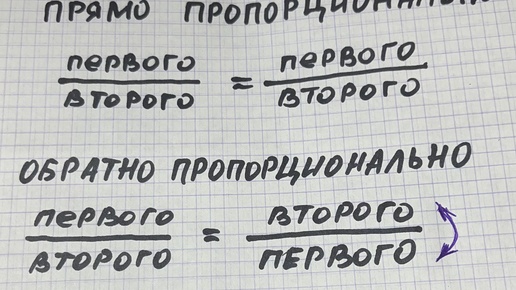 ПРЯМО ПРОПОРЦИОНАЛЬНО
первого = первого
второго второго
ОБРАТНО ПРОПОРЦИОНАЛЬНО
первого = второго
второго первого